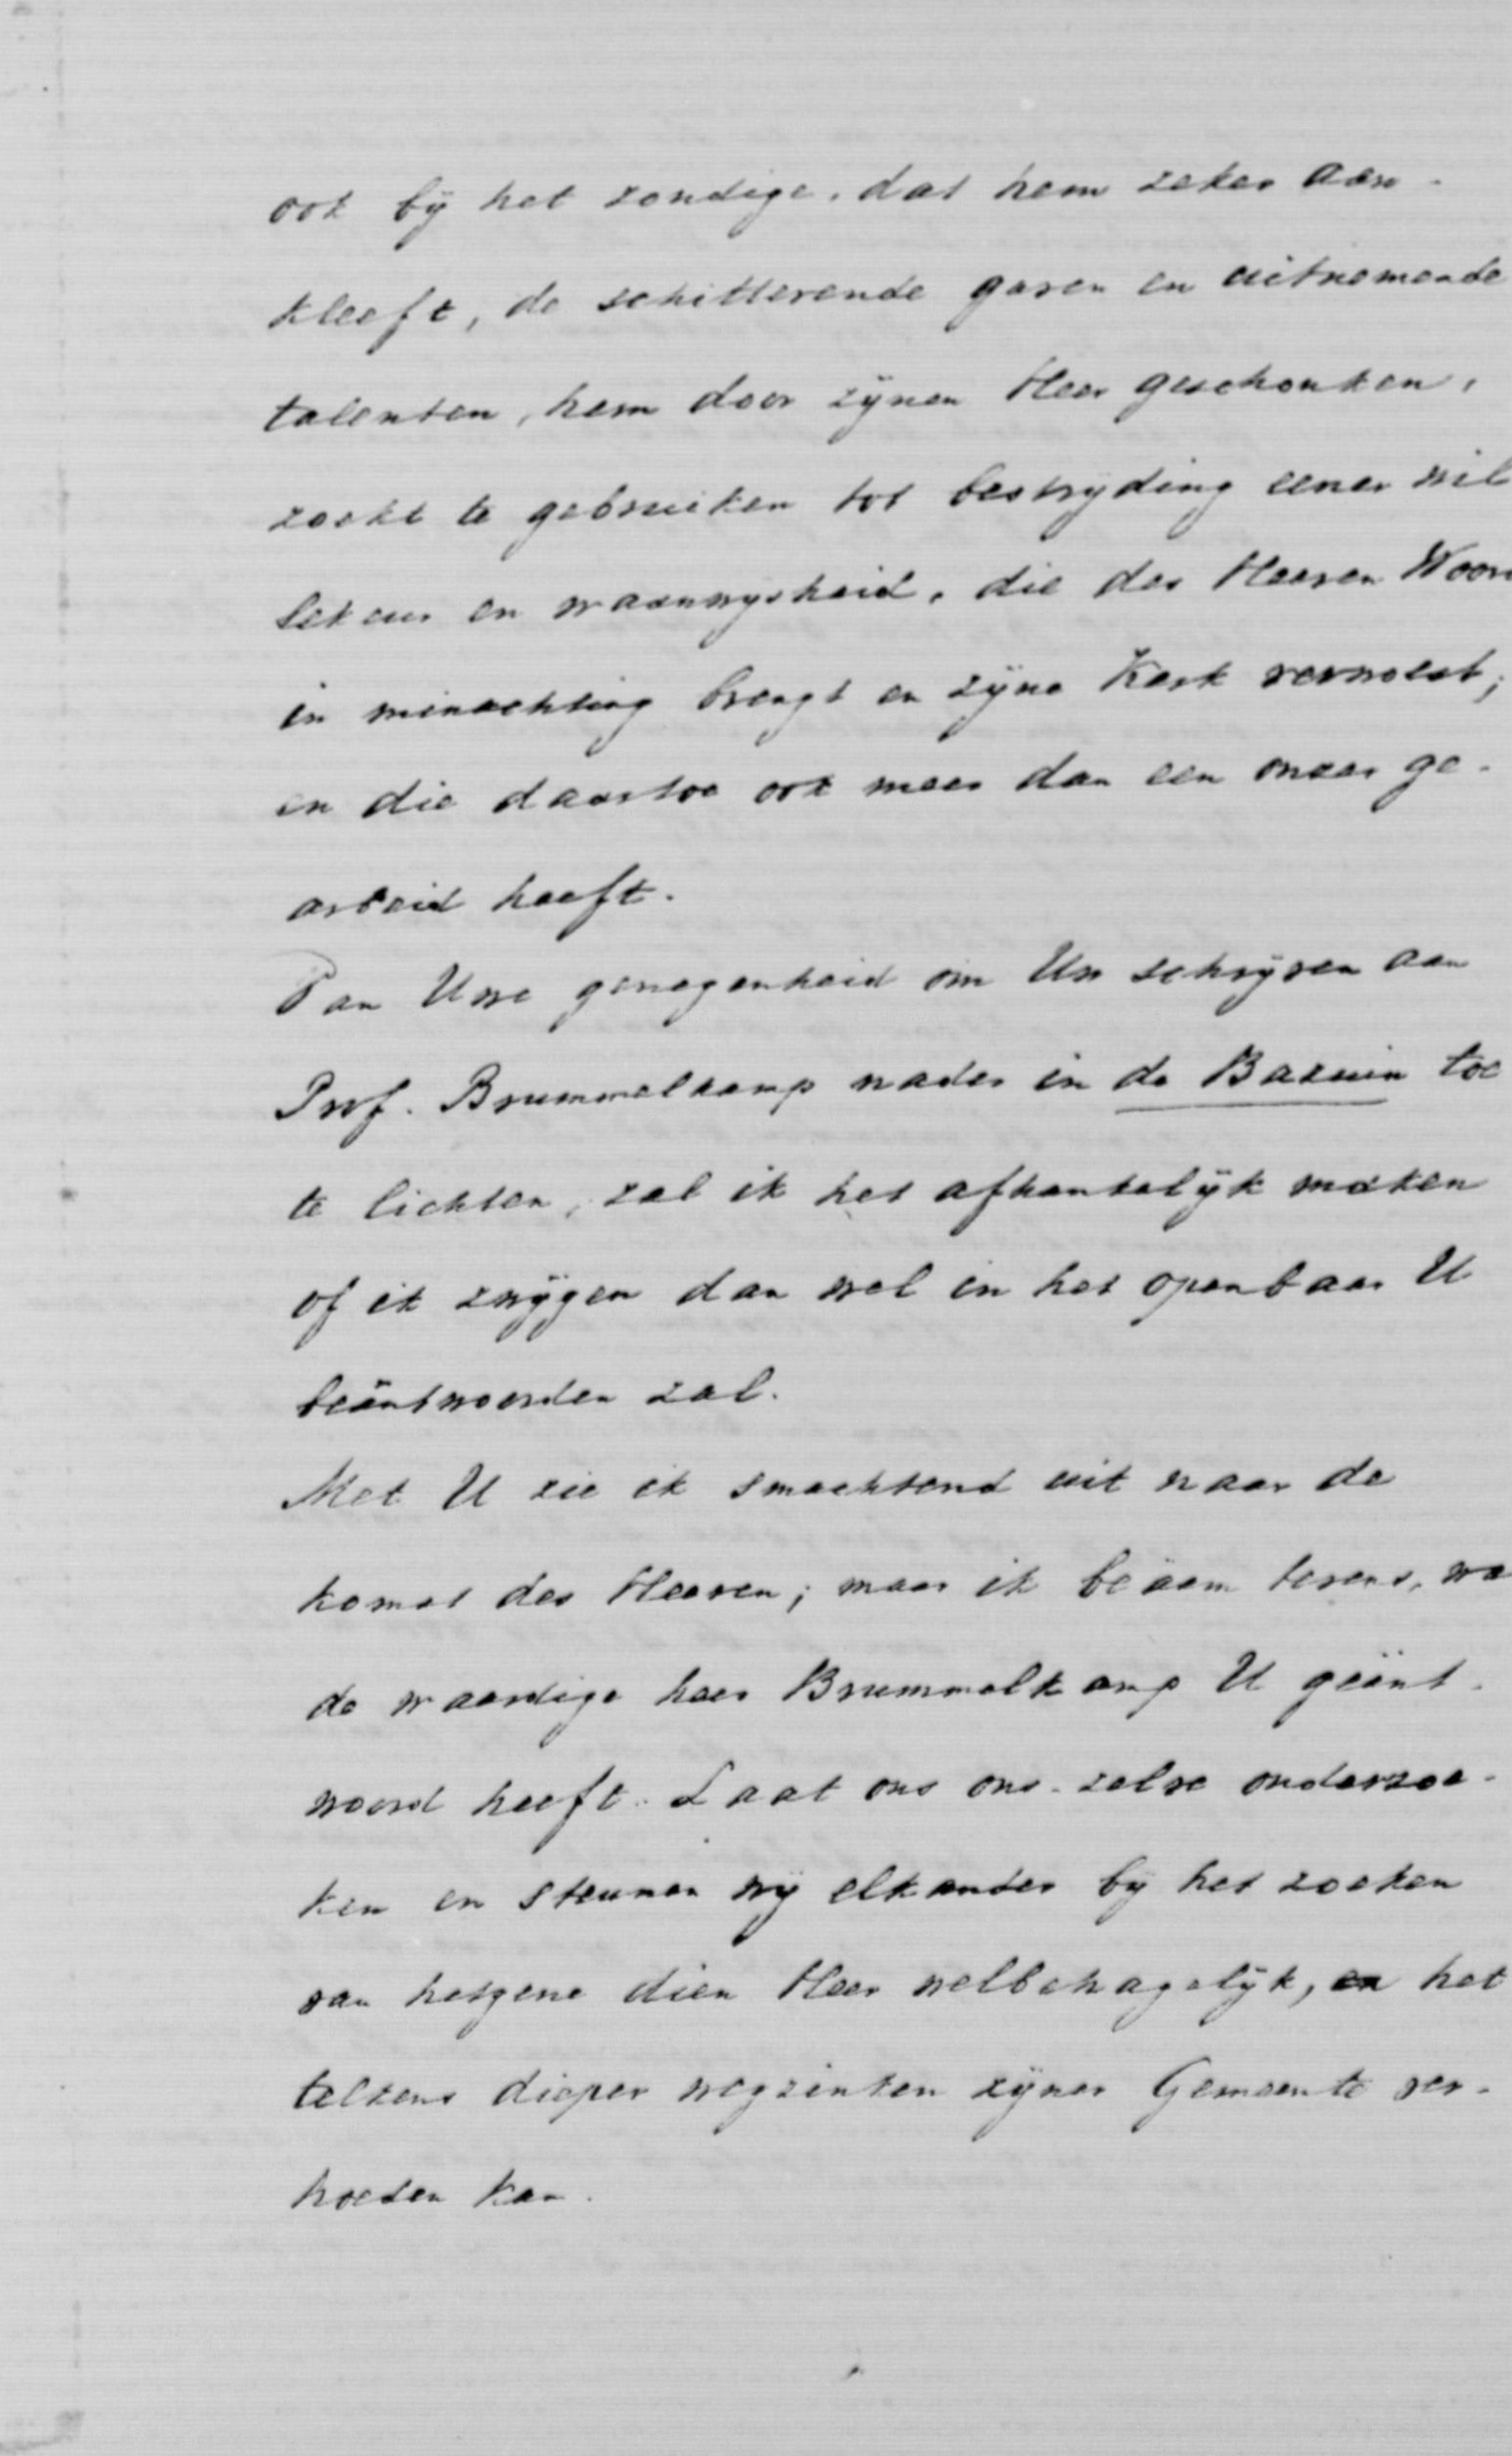 ook bij het zondige, dat hem zeker aan-
kleeft, de schitterende gaven en uitnemende
talenten, hem door zijnen Heer geschonken,
zoekt te gebruiken tot bestrijding eener wil
lekeur en waanwijsheid, die des Heeren Woor
in minachting brengt en zijne Kerk verwoest;
en die daartoe ook meer dan een onzer ge-
arbeid heeft.
Van Uwe genegenheid om Uw schrijven aan
Prof. Brummelkamp nader in de Bazuin toe
te lichten, zal ik het afhankelijk maken
of ik zwijgen dan wel in het openbaar U
beäntwoorden zal.
Met U zie ik smachtend uit naar de
komst des Heeren; maar ik beäam tevens, wa
de waardige heer Brummelkamp U geänt-
woord heeft. Laat ons ons-zelve onderzoe-
ken en steunen wij elkander bij het zoeken
van hetgene dien Heer welbehagelijk, en het
telkens dieper wegzinken zijner Gemeente ver-
hoeden kan.